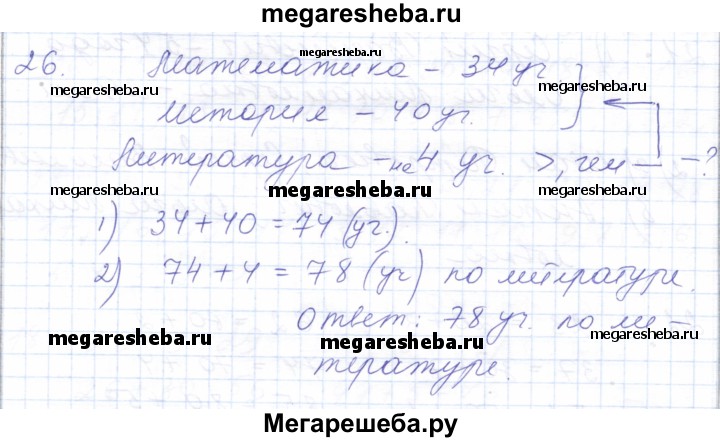 megaresheba.ru
26. Математика – 34 уч.
megaresheba.ru megaresheba.ru
История – 40 уч.
Литература – на 4 уч. >, чем — – ?
megaresheba.ru megaresheba.ru megaresheba.ru
1) 34 + 40 = 74 (уч.).
2) 74 + 4 = 78 (уч) по литературе.
Ответ: 78 уч. по ли –
megaresheba.ru megaresheba.ru megaresheba.ru
тературе.
Мегарешеба.ру